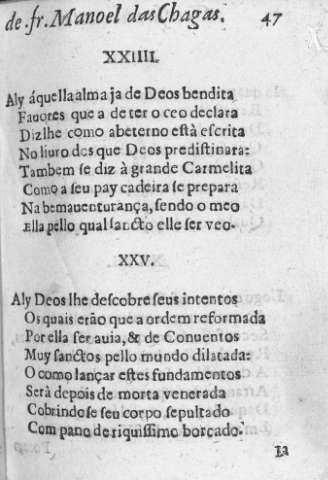 de .fr. Manoel das Chagas. 47
XXIIII.
Aly áquella alma ja de Deos bendita
Fauores que a de ter o ceo declara
Dizlhe como abeterno està eſcrita
No liuro dos que Deos prediſtinara:
Tambem ſe diz à grande Carmelita
Como a ſeu pay cadeira ſe prepara
Na bemauenturança, ſendo o meo
Ella pello qual ſancto elle ſer veo.
XXV.
Aly Deos lhe deſcobre ſeus intentos
Os quais erão que a ordem reformada
Por ella ſer auia, & de Conuentos
Muy ſanctos pello mundo dilatada:
O como lançar eſtes fundamentos
Serà depois de morta venerada
Cobrindoſe ſeu corpo ſepultado
Com pano de riquiſſimo borcado.
Ia